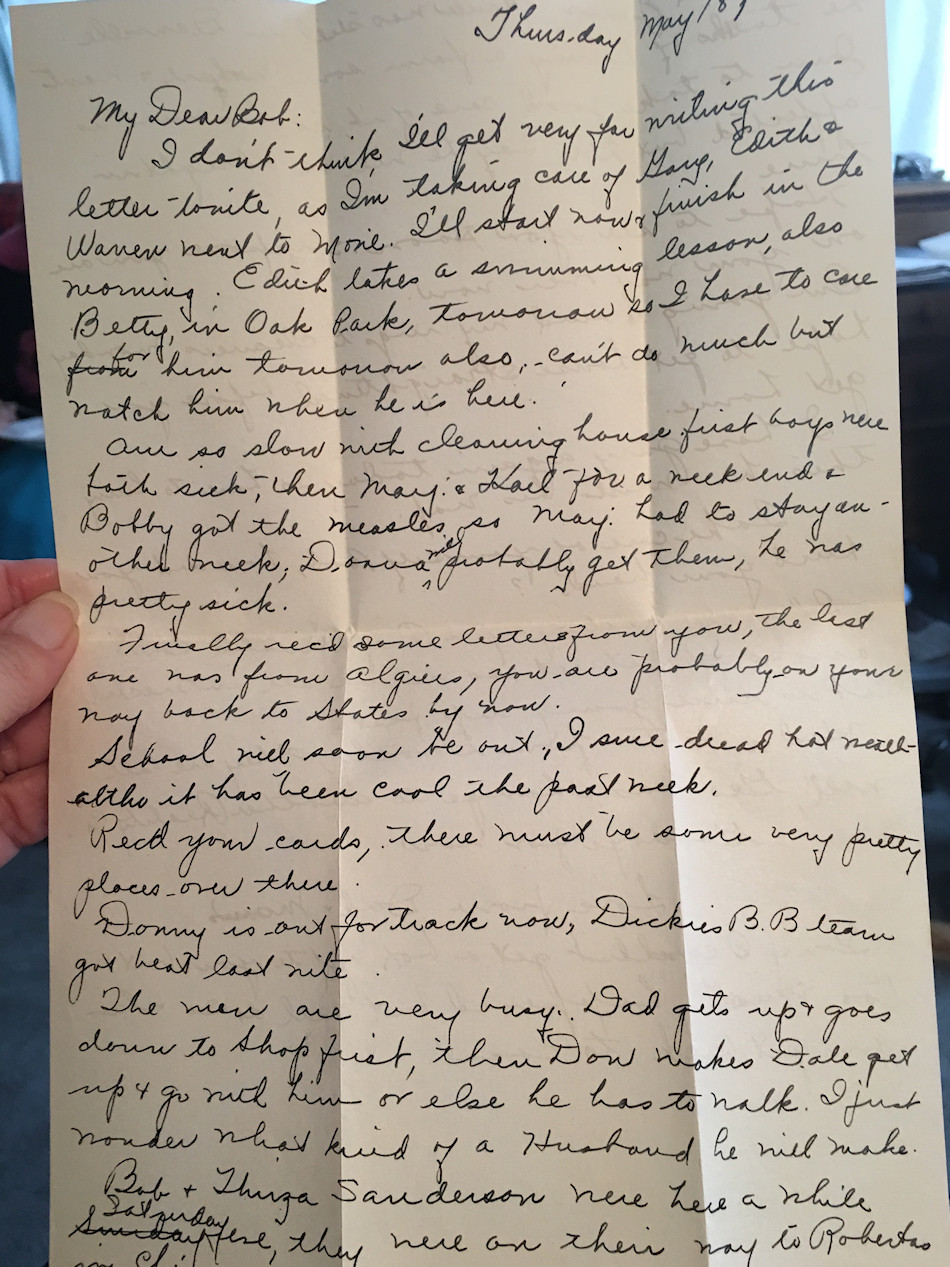 Thursday May 18,
My Dear Bob:
I don't think I'll get very far writing this
letter tonite, as I'm taking care of Gary, Edith &
Warren went to Movie. I'll start now & finish in the
morning. Edith takes a swimming lesson, also
Betty, in Oak Park, tomorrow so I have to care
from for him tomorrow also, - can't do much but
watch him when he is here.
Am so slow with cleaning house first boys were
both sick, then Marj. & Karl for a week end &
Bobby got the measles, so Marj. had to stay an-
other week, Donna will probably get them, he was
pretty sick.
Finally rec'd some letters from you, the last
one was from Algiers, you are probably on your
way back to States by now.
School will soon be out, I sure dread hot weath-
altho it has been cool the past week.
Recd your cards, there must be some very pretty
places over there.
Donny is out for track now, Dickies B.B team
got beat last nite.
The men are very busy. Dad gets up & goes
down to Shop first, then Don makes Dale get
up & go with him or else he has to walk. I just
wonder what kind of a Husband he will make.
Bob & Thirza Sanderson were here a while
Sunday Saturday eve, they were on their way to Robertas
in Chi